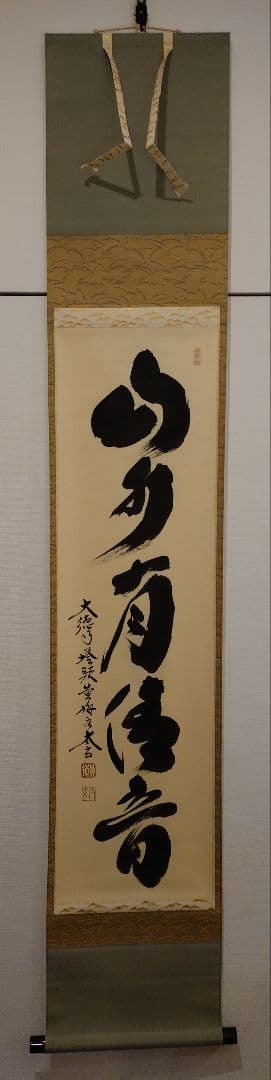 山水有清音
大徳寺塔頭黄梅院太玄